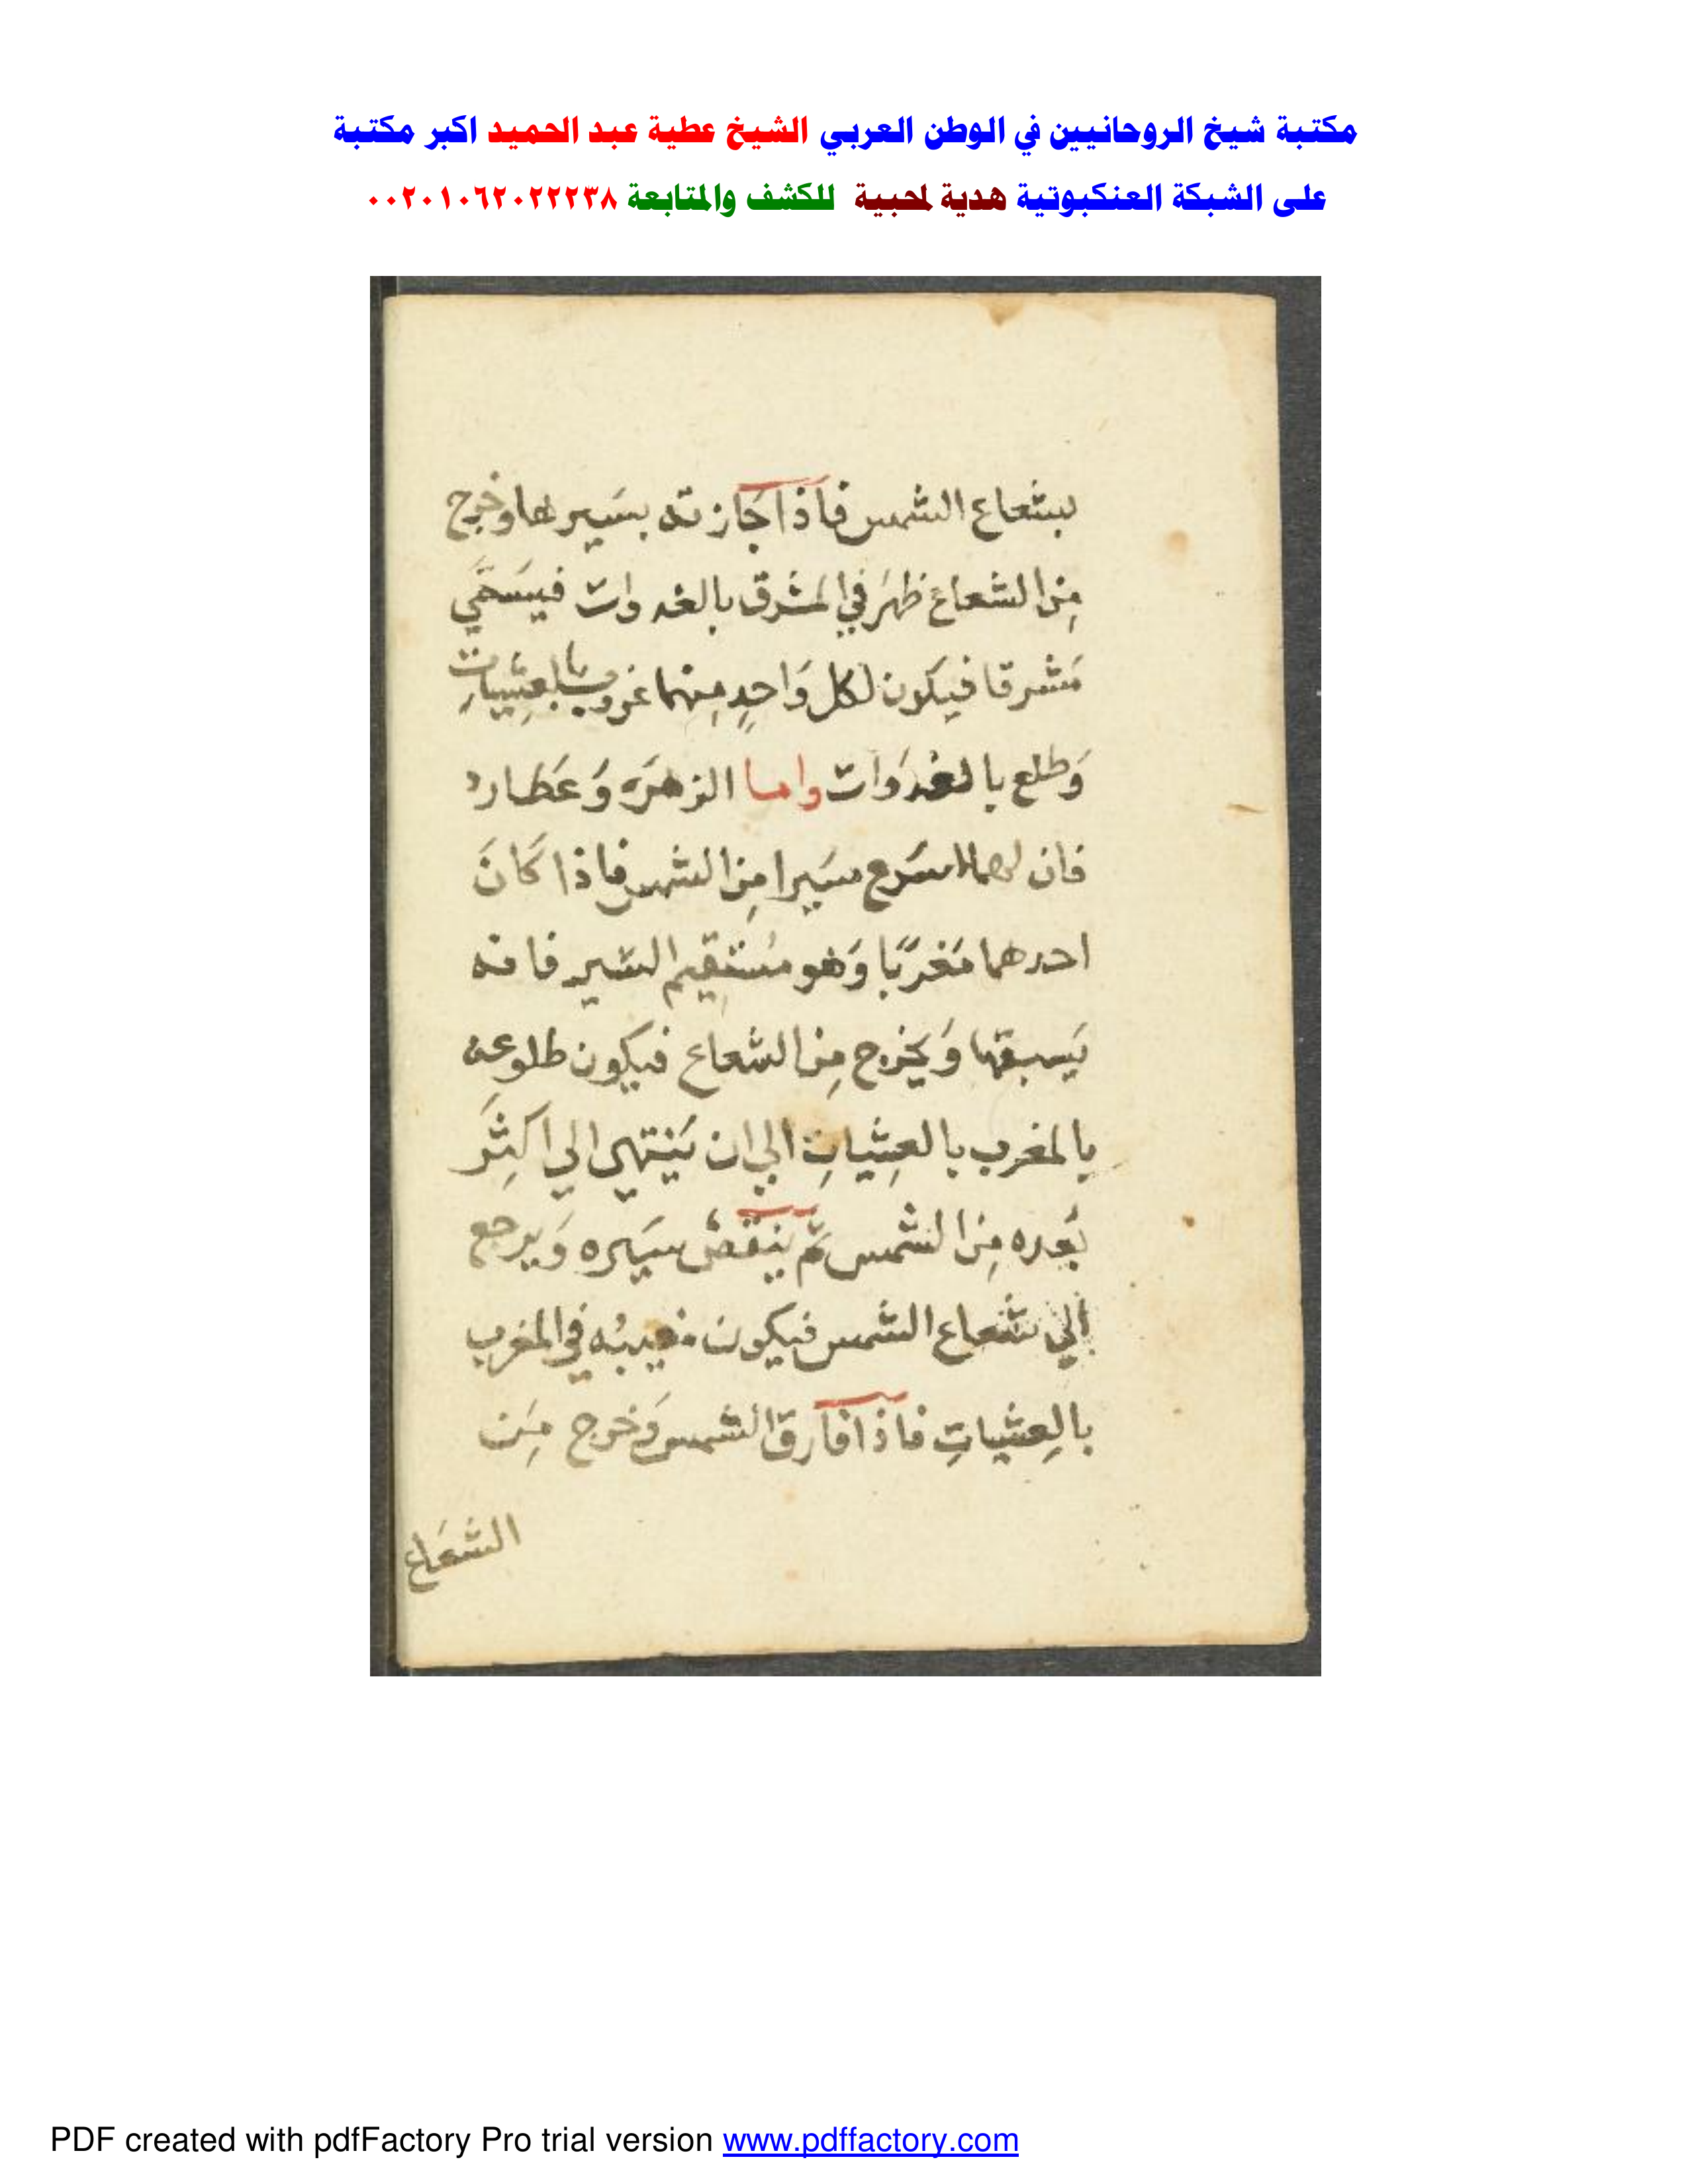 مكتبة شيخ الروحانيين في الوطن العربي الشيخ عطية عبد الحميد اكبر مكتبة
على الشبكة العنكبوتية هدية لمحبية للكشف والمتابعة ٠٠٢٠١٠٦٢٠٢٢٢٣٨
بشعاع الشمس فاذا جازته بسَيرها وخرج
مِن الشعاع ظهَر في المشرق بالغدوات فيسَمَّي
مَشرقا فيكون لكل وَاحدٍ مِنهما غروب بالعِشياتِ
وَطلع بالغدَوات واما الزهرَه وَعَطارد
فان لهما اسرع سَيرا مِن الشمس فاذا كَانَ
احدهما مَغربًا وَهو مُستقيم السَير فانه
يَسبقها وَيخرج مِن الشعاع فيكون طلوعه
بالمغرب بالعِشياتِ الي ان يَنتهي الي اكثِرَ
بُعده مِن الشمس ثم ينقصُ سَيره وَيرجع
الي شعاع الشمس فيكون مغيبُه في المغرب
بالعِشياتِ فاذا فارق الشمس وَخرج مِن
الشعَاع
PDF created with pdfFactory Pro trial version www.pdffactory.com